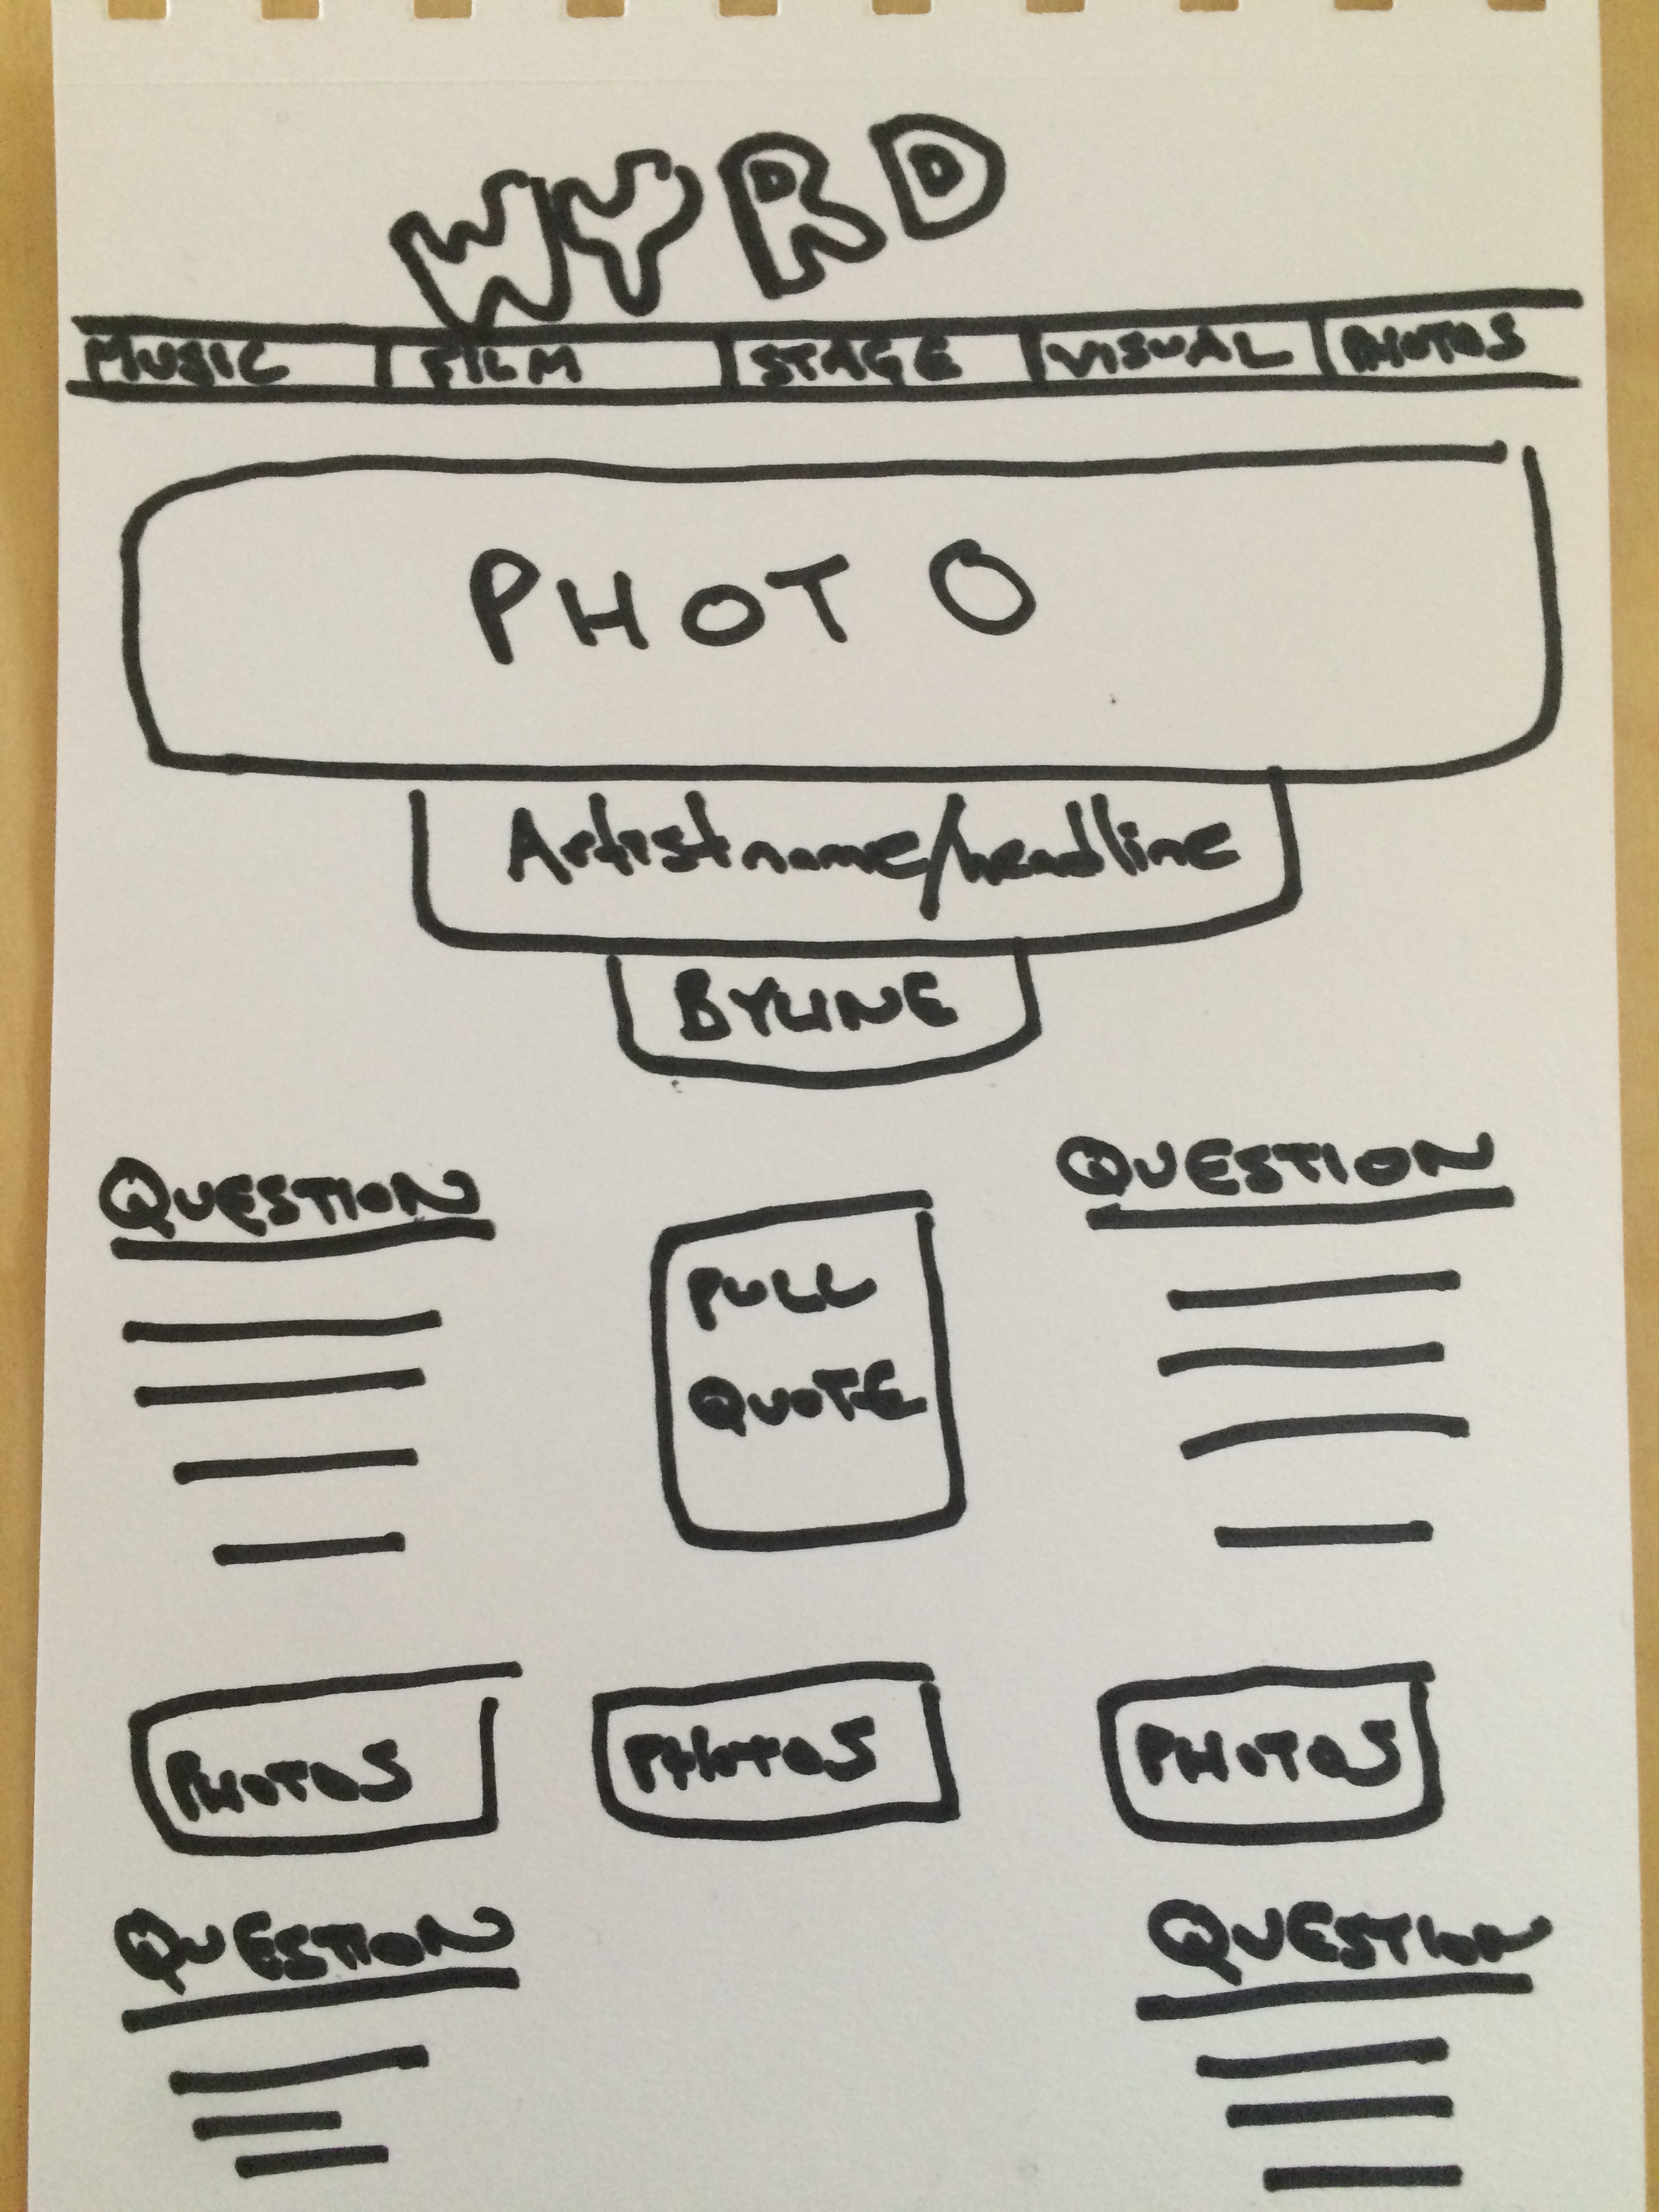 WYRD
MUSIC FILM STAGE VISUAL PHOTOS
PHOTO
Artist name/headline
BYLINE
QUESTION QUESTION
PULL
QUOTE
PHOTOS PHOTOS PHOTOS
QUESTION QUESTION